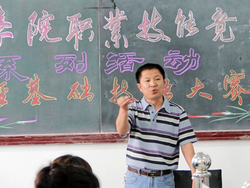 学院职业技能竞
系列活动
基础技 大赛